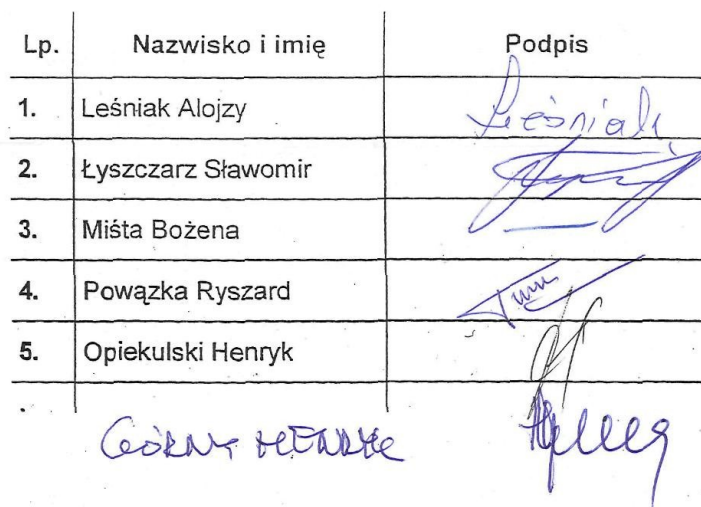 Lp. Nazwisko i imię Podpis
1. Leśniak Alojzy Leśniak
2. Łyszczarz Sławomir
3. Miśta Bożena
4. Powązka Ryszard
5. Opiekulski Henryk
GÓRNY HENRYK